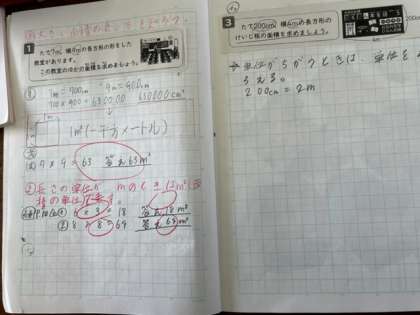 1
たて7m、横9mの長方形の形をした
教室があります。
この教室のゆかの面積を求めましょう。
7m=700cm 9m=900cm
700×900=630000 630000cm²
1m²(一平方メートル)
7×9=63 答え63m²
長さの単位が mのとき
6×3=18 答え18m²
8×8=64 答え
3
たて200cm、横4mの長方形の
けいじ板の面積を求めましょう。
→単位がちがうときは、単位を
そろえる。
200cm=2m